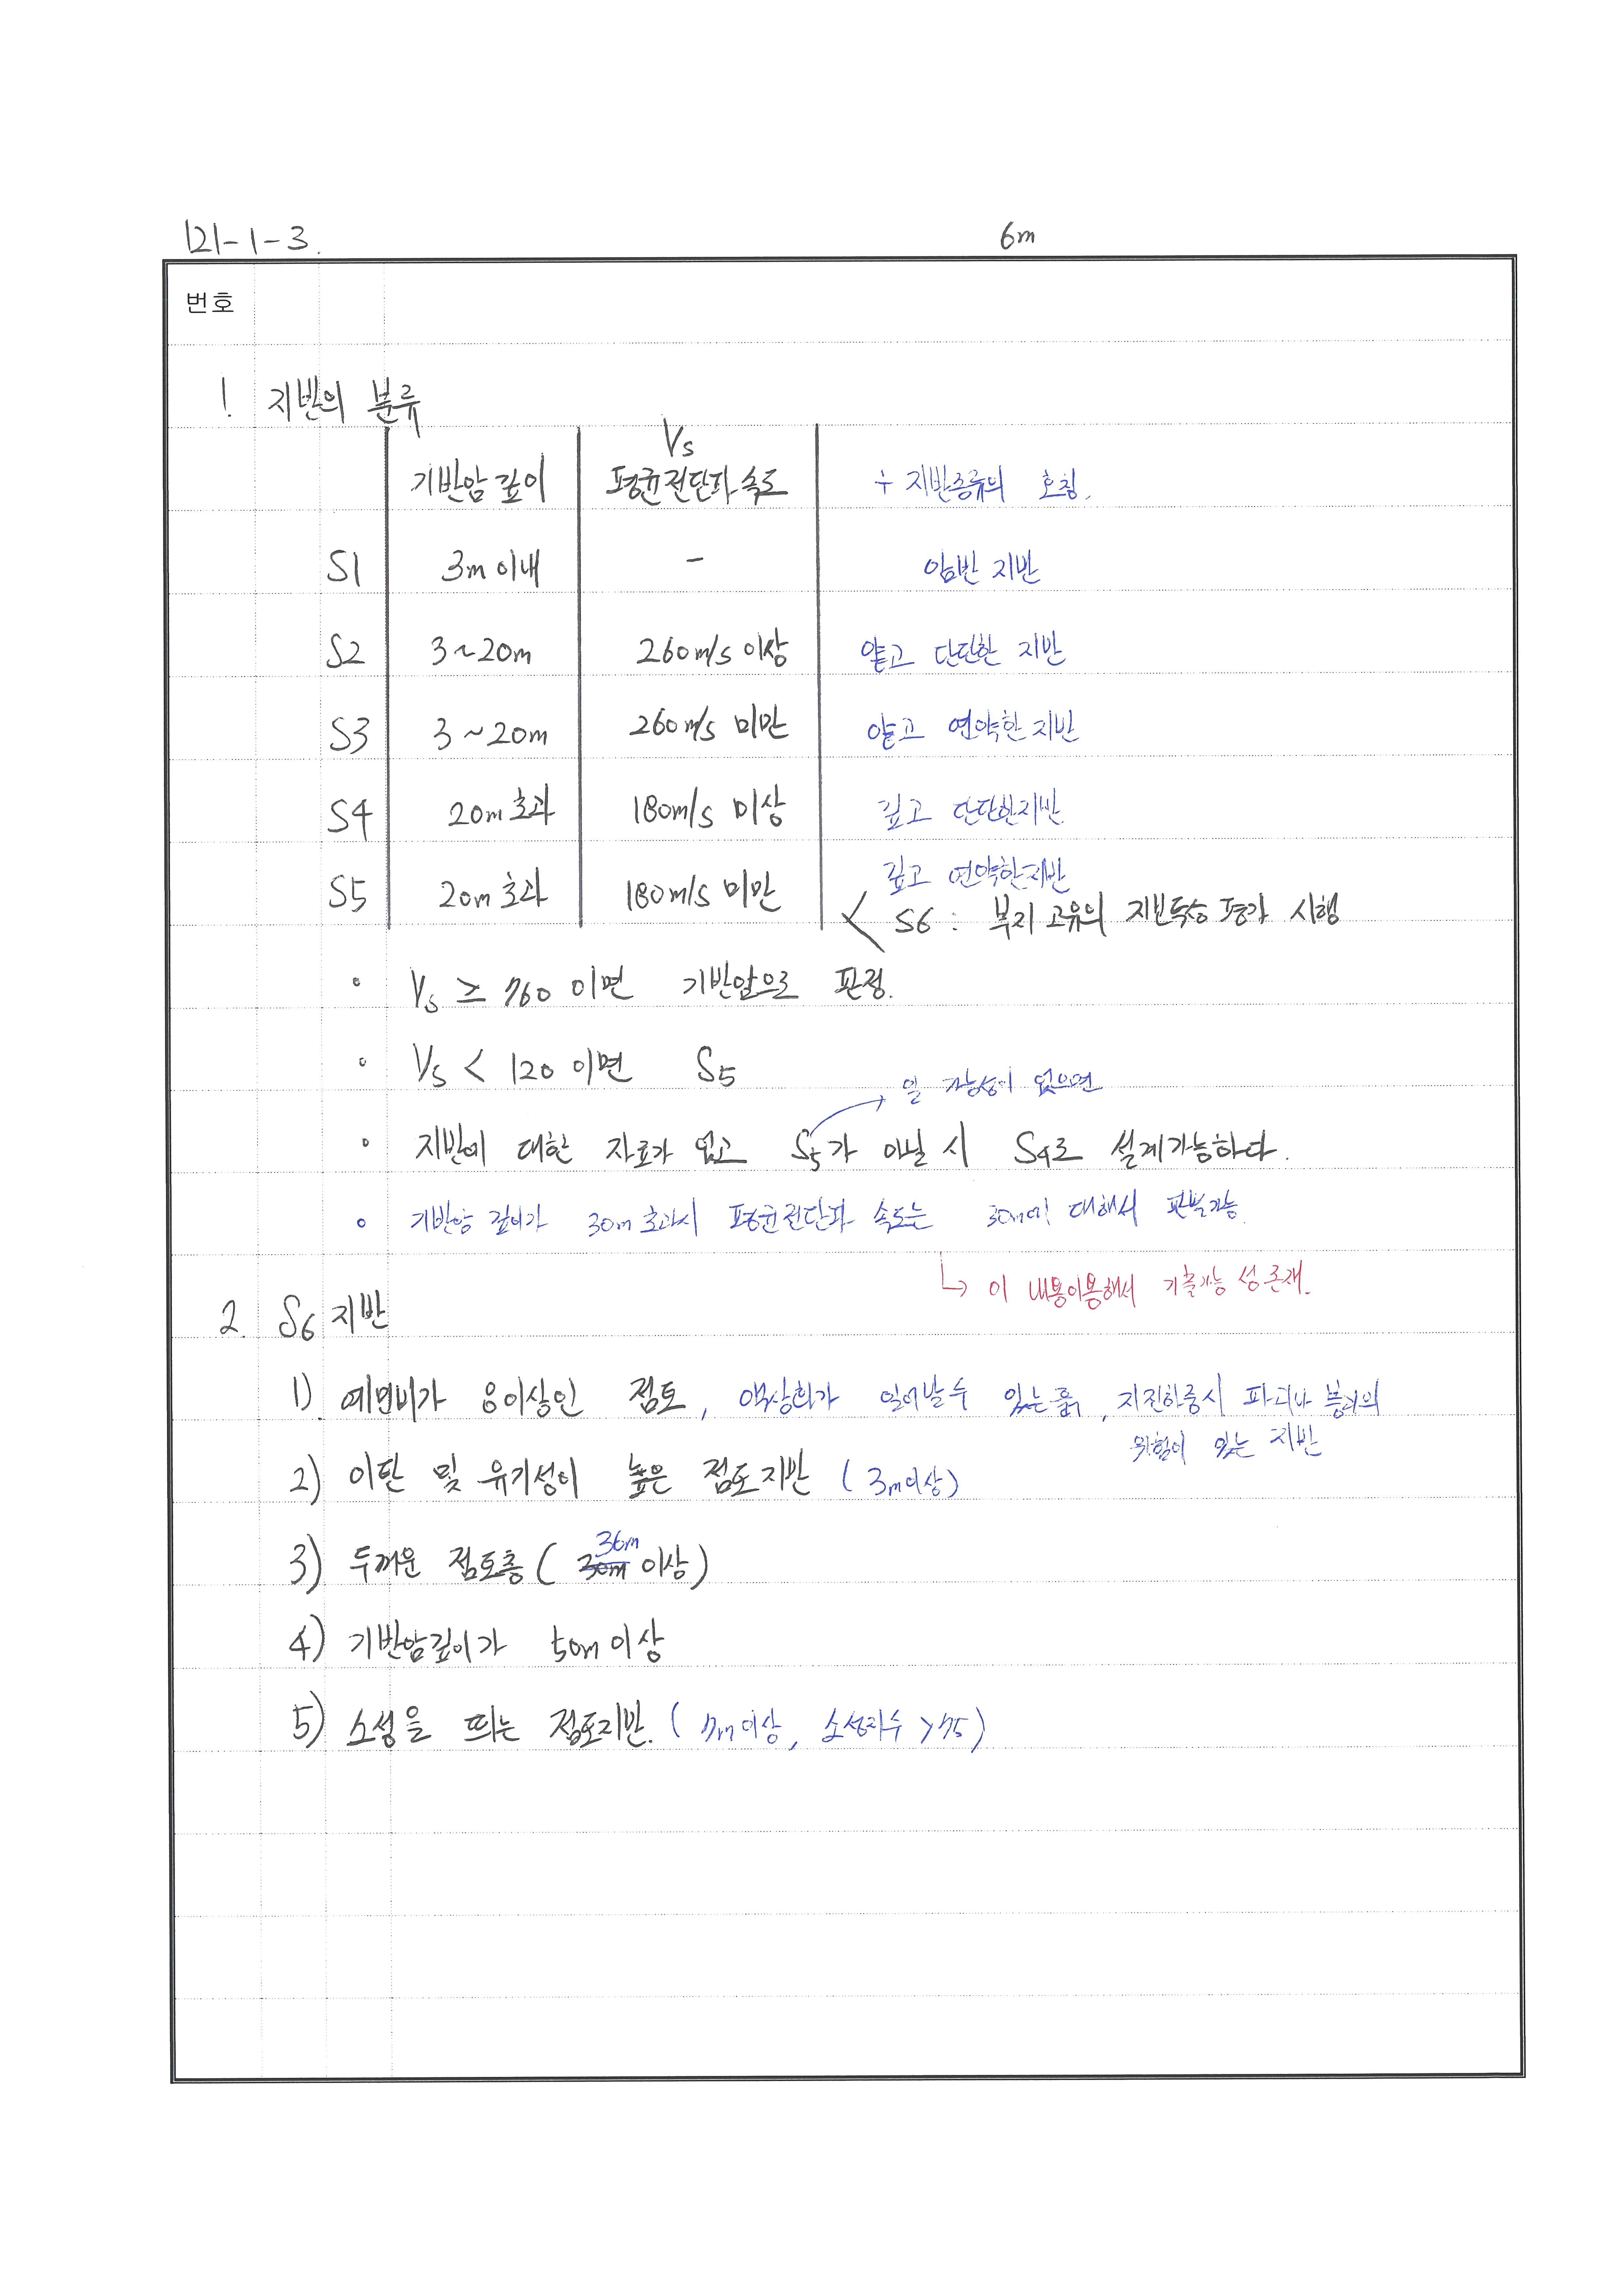 121-1-3.
6m
번호
1. 지반의 분류
기반암 깊이 Vs 평균전단파 속도 + 지반종류의 호칭.
S1 3m 이내 - 암반 지반
S2 3~20m 260m/s 이상 얕고 단단한 지반
S3 3~20m 260m/s 미만 얕고 연약한 지반
S4 20m 초과 180m/s 이상 깊고 단단한지반
S5 20m 초과 180m/s 미만 깊고 연약한지반
< S6 : 부지 고유의 지반특성 평가 시행
◦ Vs ≥ 760 이면 기반암으로 판정.
◦ Vs < 120 이면 S5
일 가능성이 없으면
◦ 지반에 대한 자료가 없고 S5가 아닐 시 S4로 설계가능하다.
◦ 기반암 깊이가 30m 초과시 평균전단파 속도는 30m에 대해서 판별가능.
↳ 이 내용이용해서 기출가능성존재.
2. S6 지반
1). 예민비가 8이상인 점토, 액상화가 일어날수 있는흙, 지진하중시 파괴나 붕괴의
위험이 있는 지반
2) 이탄 및 유기성이 높은 점토지반 (3m이상)
36m
3) 두꺼운 점토층 (30m 이상)
4) 기반암깊이가 50m 이상
5) 소성을 띄는 점토지반. (7m이상, 소성지수 >75)